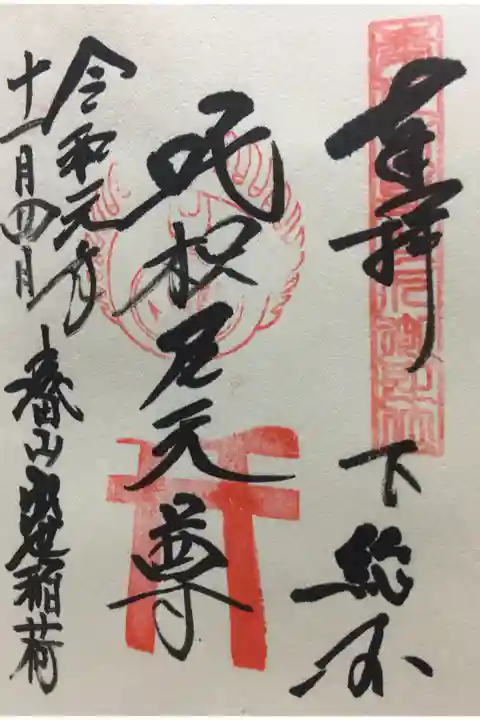 奉拝
下総国
吒枳尼天尊
令和元年
十一月四日
成田山出世稲荷